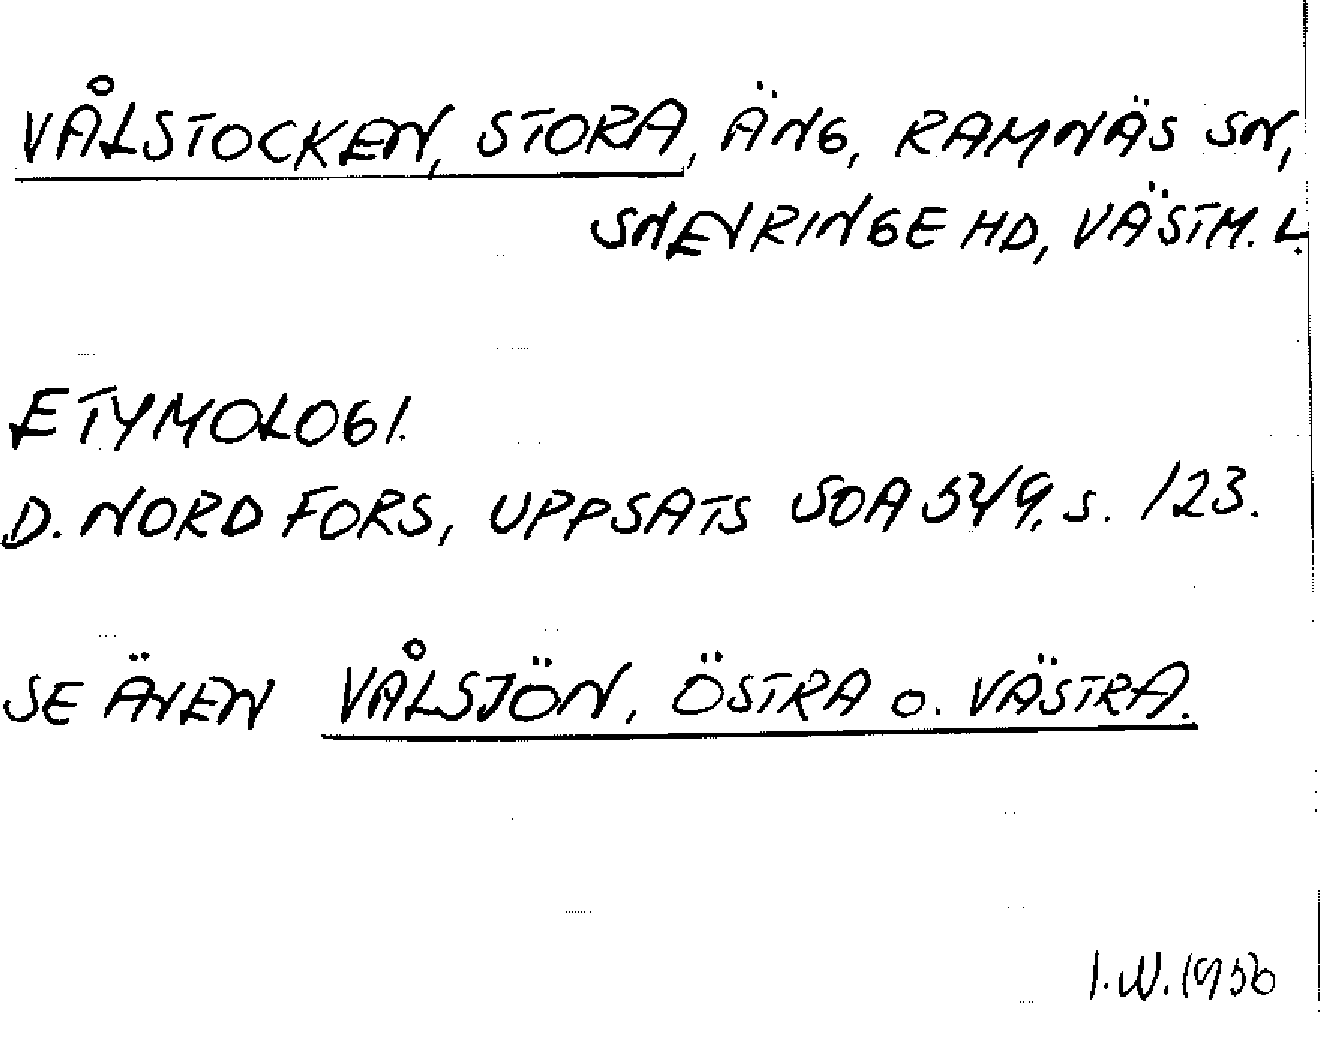 VÅLSTOCKEN, STORA, ÄNG, RAMNÄS SN,
SNEVRINGE HD, VÄSTM. L.
ETYMOLOGI.
D. NORDFORS, UPPSATS SOA 5249, s. 123.
SE ÄVEN VÅLSJÖN, ÖSTRA o. VÄSTRA.
I.W. 1956